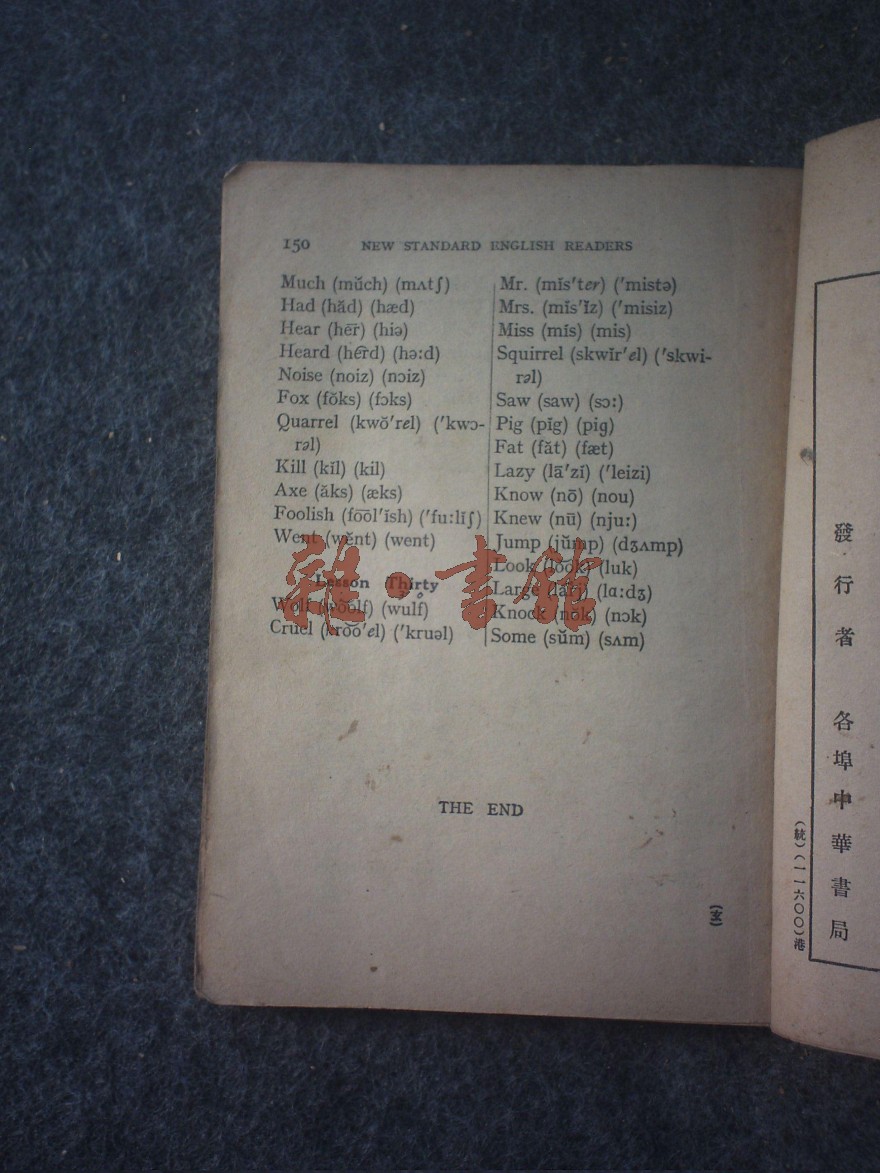 150 NEW STANDARD ENGLISH READERS
Much (mŭch) (mʌtʃ)
Had (hăd) (hæd)
Hear (hēr) (hiə)
Heard (hẽrd) (hə:d)
Noise (noiz) (nɔiz)
Fox (fŏks) (fɔks)
Quarrel (kwŏ'rel) ('kwɔ-
rəl)
Kill (kĭl) (kil)
Axe (ăks) (æks)
Foolish (fo͞ol'ĭsh) ('fu:liʃ)
Went (wĕnt) (went)
Lesson Thirty
Wolf (wo͝olf) (wulf)
Cruel (kro͞o'el) ('kruəl)
Mr. (mĭs'ter) ('mistə)
Mrs. (mĭs'ĭz) ('misiz)
Miss (mĭs) (mis)
Squirrel (skwĭr'el) ('skwi-
rəl)
Saw (saw) (sɔ:)
Pig (pĭg) (pig)
Fat (făt) (fæt)
Lazy (lā'zĭ) ('leizi)
Know (nō) (nou)
Knew (nū) (nju:)
Jump (jŭmp) (dʒʌmp)
Look (lo͝ok) (luk)
Large (lärj) (lɑ:dʒ)
Knock (nŏk) (nɔk)
Some (sŭm) (sʌm)
THE END
(玄)
雜·書館
發行者 各埠中華書局
(統)(一一六〇〇)港